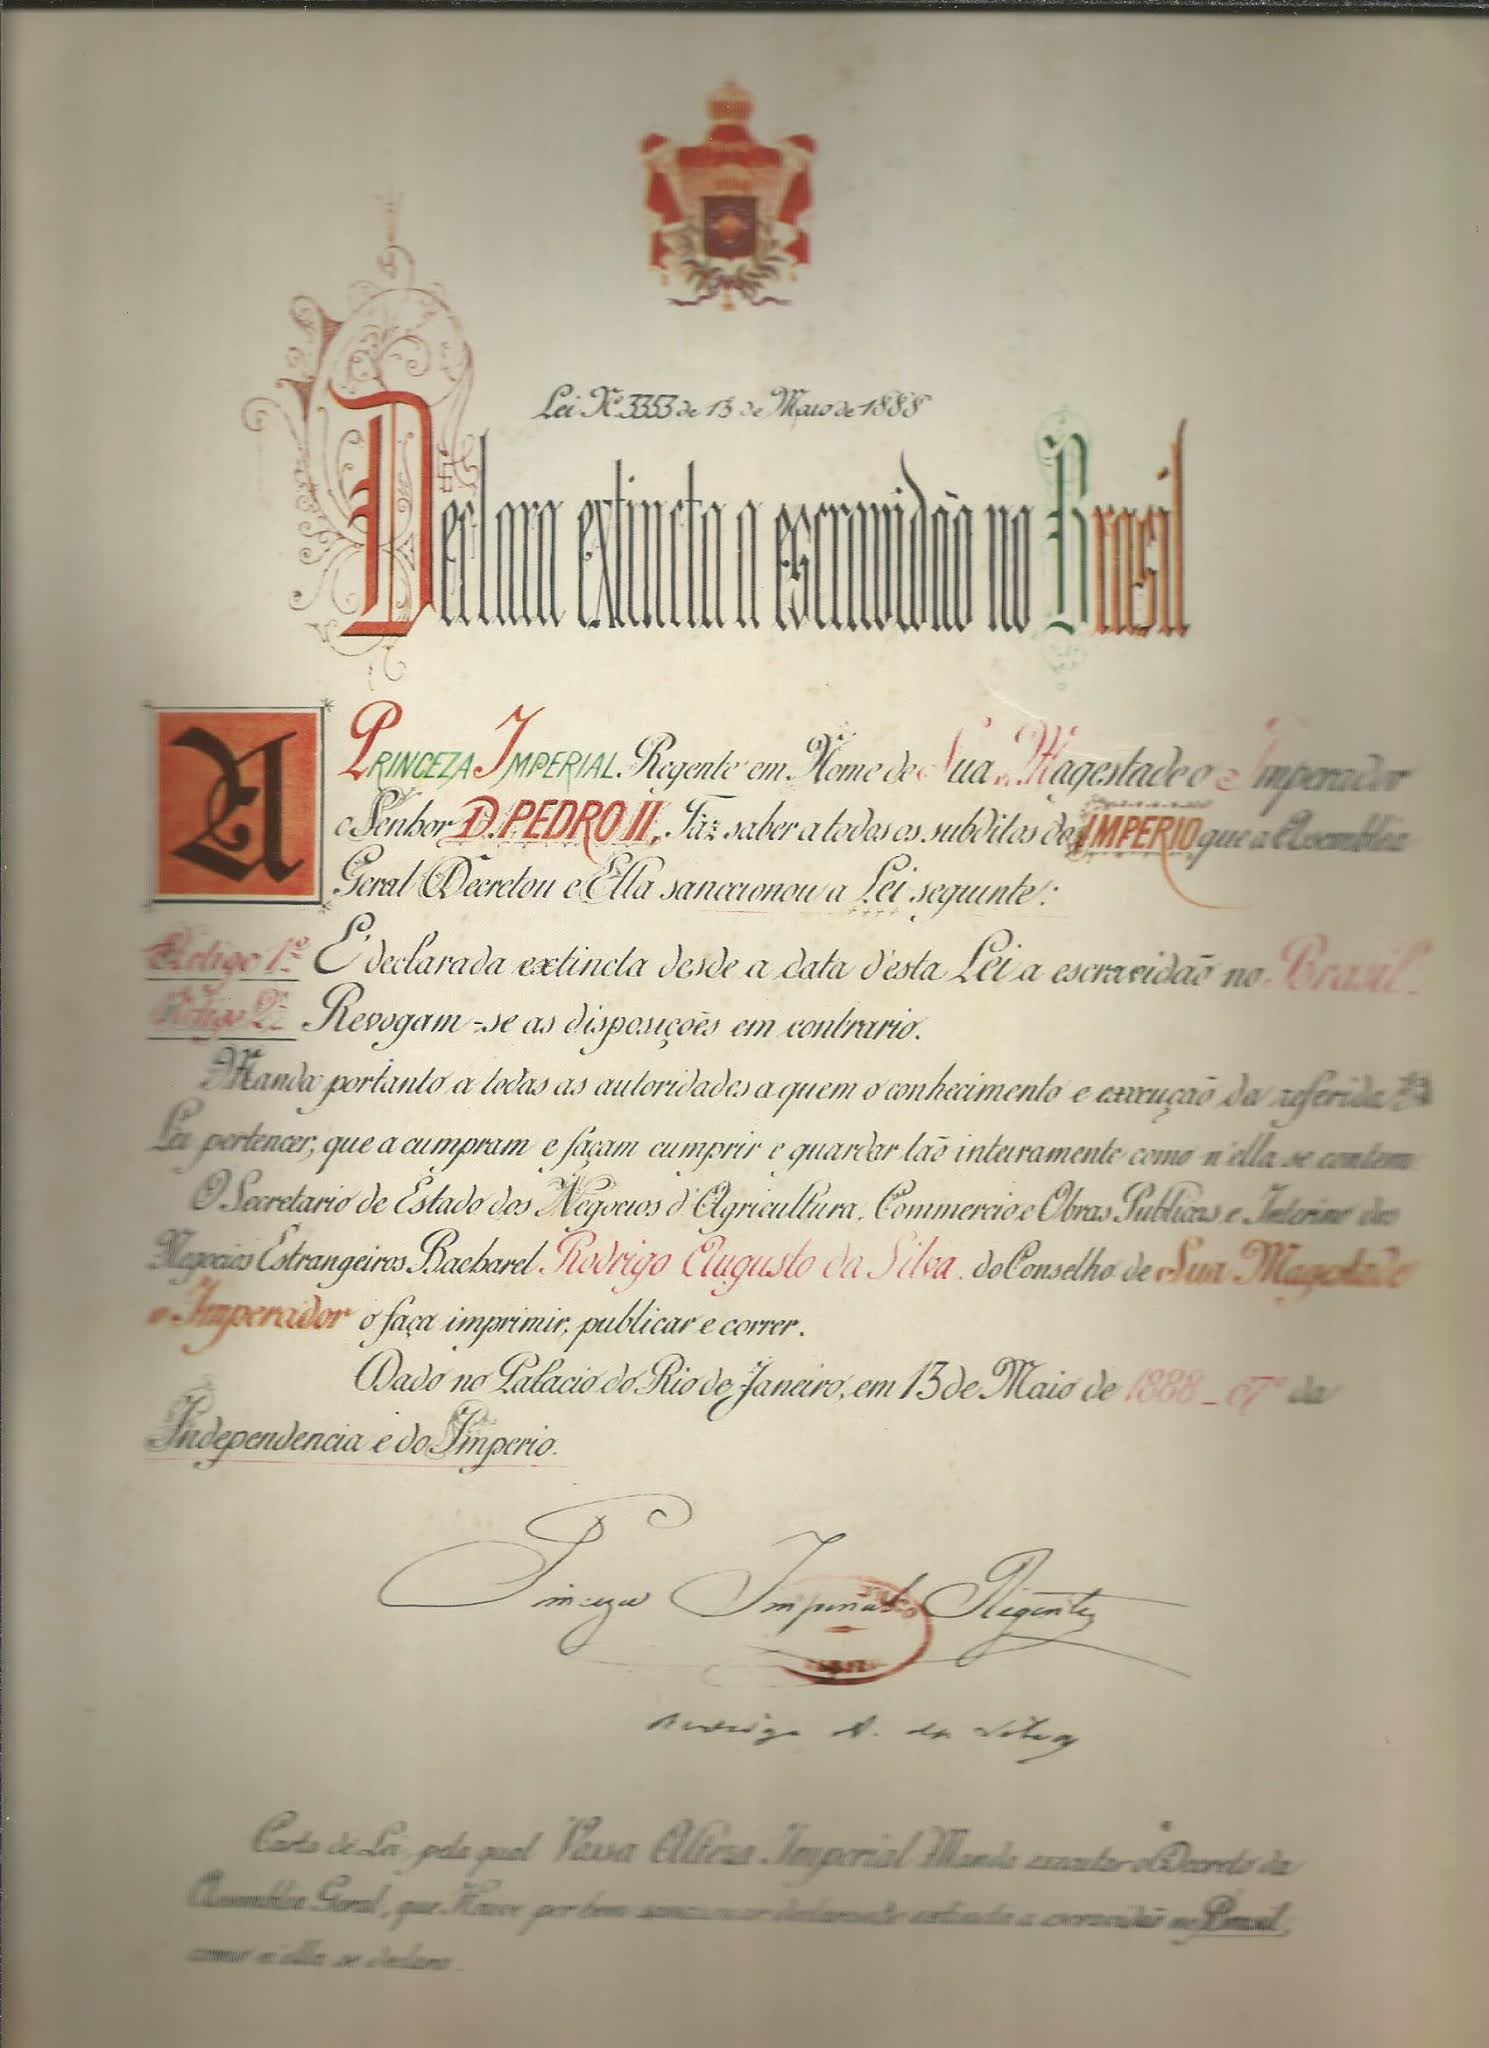 Lei Nº 3353 de 13 de Maio de 1888
Declara extincta a escravidão no Brasil
A PRINCEZA IMPERIAL. Regente em Nome de Sua Magestade o Imperador
o Senhor D. PEDRO II, Faz saber a todos os subditos do IMPERIO que a Assembléa
Geral Decretou e Ella sanccionou a Lei seguinte:
Artigo 1º É declarada extincta desde a data d'esta Lei a escravidão no Brasil.
Artigo 2º Revogam-se as disposições em contrario.
Manda portanto a todas as autoridades a quem o conhecimento e execução da referida
Lei pertencer, que a cumpram e façam cumprir e guardar tão inteiramente como n'ella se contem
O Secretario de Estado dos Negocios d'Agricultura, Commercio e Obras Publicas e Interino dos
Negocios Estrangeiros Bacharel Rodrigo Augusto da Silva, do Conselho de Sua Magestade
o Imperador o faça imprimir, publicar e correr.
Dado no Palacio do Rio de Janeiro, em 13 de Maio de 1888 - 67º da
Independencia e do Imperio.
Princeza Imperial Regente
Rodrigo A. da Silva
Carta de Lei, pela qual Vossa Alteza Imperial Manda executar o Decreto da
Assembléa Geral, que Houve por bem sanccionar declarando extincta a escravidão no Brasil,
como n'ella se declara